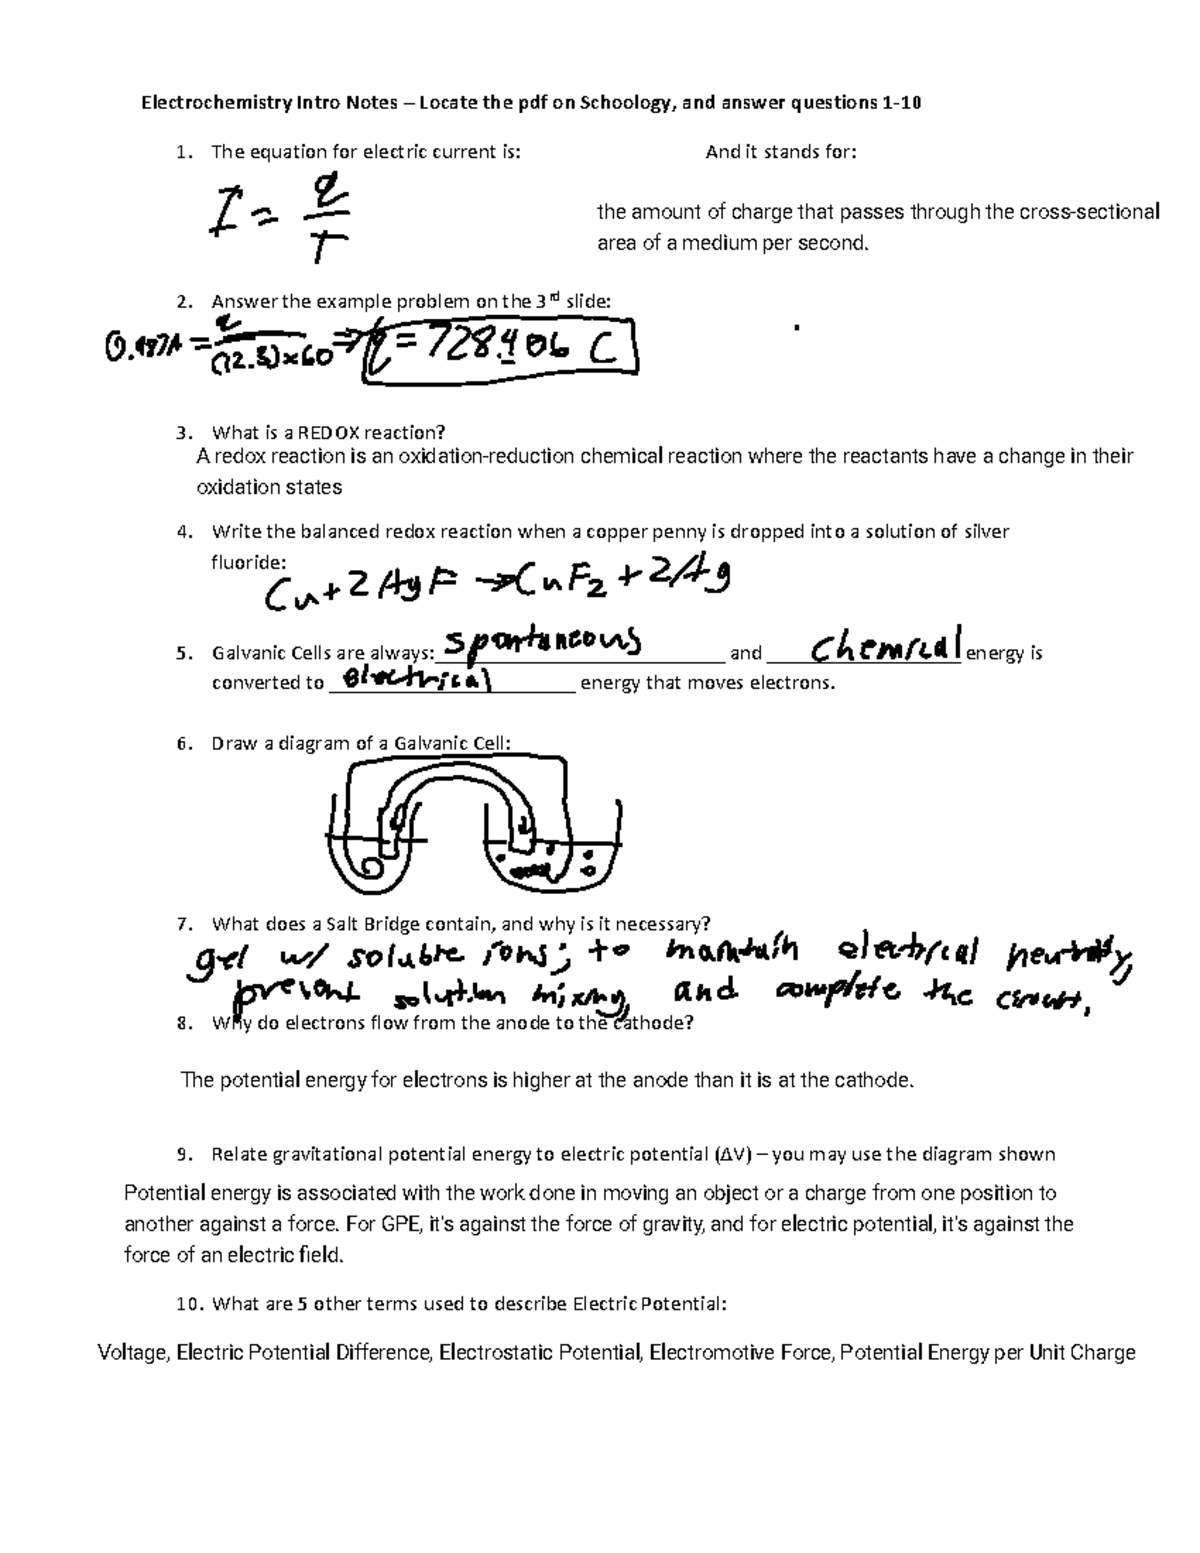 Electrochemistry Intro Notes – Locate the pdf on Schoology, and answer questions 1-10
1. The equation for electric current is: And it stands for:
I = q/T
the amount of charge that passes through the cross-sectional
area of a medium per second.
2. Answer the example problem on the 3rd slide:
0.987A = q/(12.3)×60 ⇒ q = 728.406 C
3. What is a REDOX reaction?
A redox reaction is an oxidation-reduction chemical reaction where the reactants have a change in their
oxidation states
4. Write the balanced redox reaction when a copper penny is dropped into a solution of silver
fluoride:
Cu + 2AgF → CuF2 + 2Ag
5. Galvanic Cells are always: spontaneous and chemical energy is
converted to electrical energy that moves electrons.
6. Draw a diagram of a Galvanic Cell:
7. What does a Salt Bridge contain, and why is it necessary?
gel w/ soluble ions; to maintain electrical neutrality,
prevent solution mixing, and complete the circuit.
8. Why do electrons flow from the anode to the cathode?
The potential energy for electrons is higher at the anode than it is at the cathode.
9. Relate gravitational potential energy to electric potential (ΔV) – you may use the diagram shown
Potential energy is associated with the work done in moving an object or a charge from one position to
another against a force. For GPE, it's against the force of gravity, and for electric potential, it's against the
force of an electric field.
10. What are 5 other terms used to describe Electric Potential:
Voltage, Electric Potential Difference, Electrostatic Potential, Electromotive Force, Potential Energy per Unit Charge